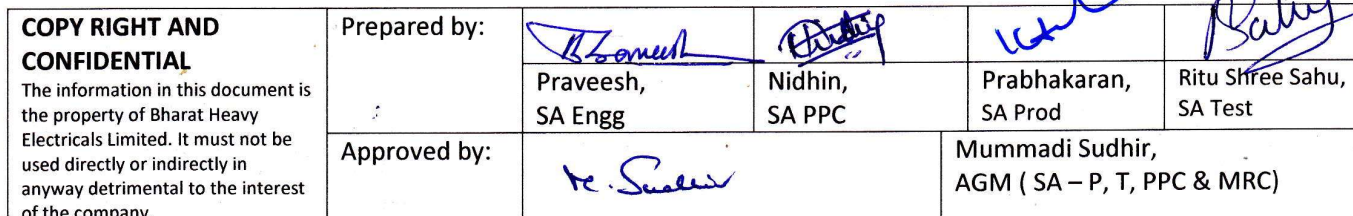 COPY RIGHT AND
CONFIDENTIAL
The information in this document is
the property of Bharat Heavy
Electricals Limited. It must not be
used directly or indirectly in
anyway detrimental to the interest
of the company.
Prepared by:
Praveesh,
SA Engg
Nidhin,
SA PPC
Prabhakaran,
SA Prod
Sahu
Ritu Shree Sahu,
SA Test
Approved by:
M. Sudhir
Mummadi Sudhir,
AGM ( SA – P, T, PPC & MRC)